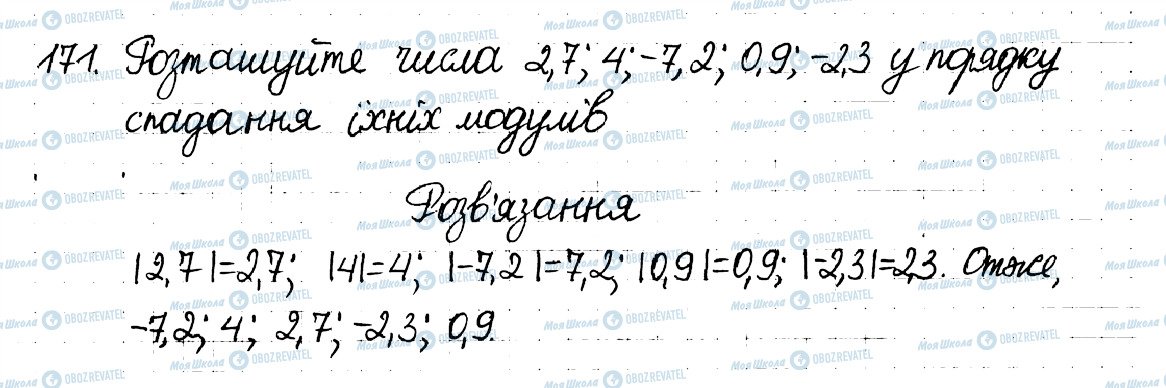 171. Розташуйте числа 2,7; 4; -7,2; 0,9; -2,3 у порядку
спадання їхніх модулів
Розв'язання
|2,7|=2,7; |4|=4; |-7,2|=7,2; |0,9|=0,9; |-2,3|=2,3. Отже,
-7,2; 4; 2,7; -2,3; 0,9.